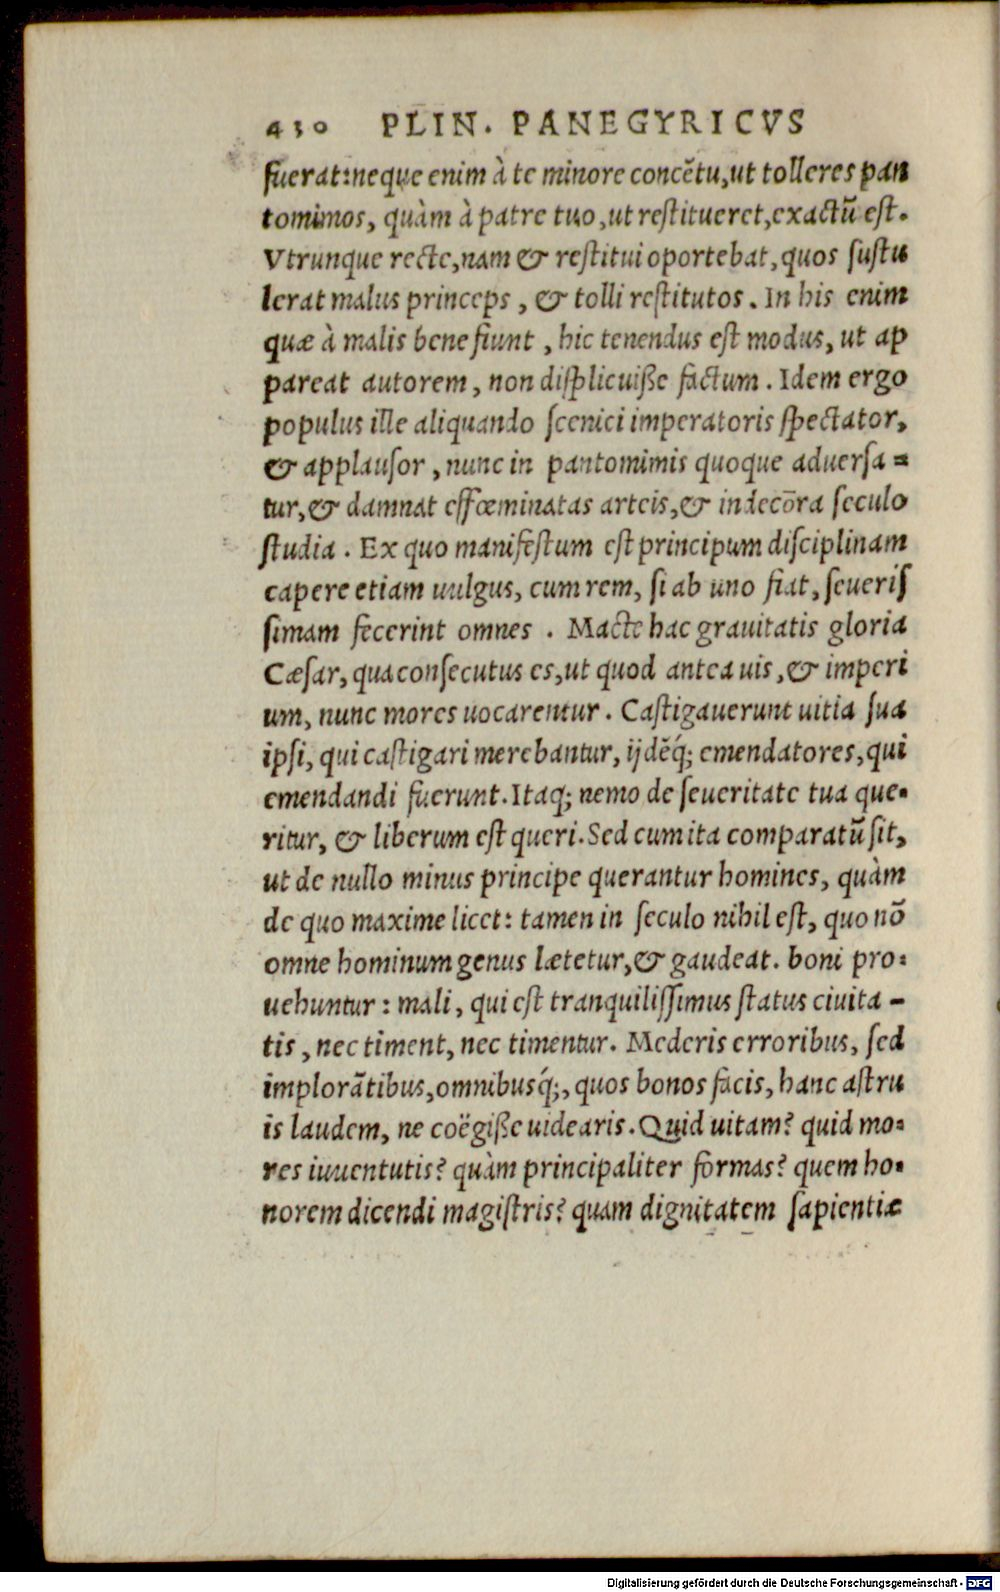 430 PLIN. PANEGYRICVS
fuerat: neque enim à te minore concẽtu, ut tolleres pan
tomimos, quàm à patre tuo, ut restitueret, exactũ est.
Vtrunque recte, nam & restitui oportebat, quos sustu
lerat malus princeps, & tolli restitutos. In his enim
quæ à malis bene fiunt, hic tenendus est modus, ut ap
pareat autorem, non displicuiße factum. Idem ergo
populus ille aliquando scenici imperatoris spectator,
& applausor, nunc in pantomimis quoque aduersa=
tur, & damnat effœminatas arteis, & indecõra seculo
studia. Ex quo manifestum est principum disciplinam
capere etiam uulgus, cum rem, si ab uno fiat, seueris
simam fecerint omnes. Macte hac grauitatis gloria
Cæsar, qua consecutus es, ut quod antea uis, & imperi
um, nunc mores uocarentur. Castigauerunt uitia sua
ipsi, qui castigari merebantur, ijdẽq́; emendatores, qui
emendandi fuerunt. Itaq; nemo de seueritate tua que-
ritur, & liberum est queri. Sed cum ita comparatũ sit,
ut de nullo minus principe querantur homines, quàm
de quo maxime licet: tamen in seculo nihil est, quo nõ
omne hominum genus lætetur, & gaudeat. boni pro-
uehuntur: mali, qui est tranquilissimus status ciuita-
tis, nec timent, nec timentur. Mederis erroribus, sed
implorãtibus, omnibusq́;, quos bonos facis, hanc astru
is laudem, ne coëgiße uidearis. Quid uitam? quid mo-
res iuuentutis? quàm principaliter formas? quem ho-
norem dicendi magistris? quam dignitatem sapientiæ
Digitalisierung gefördert durch die Deutsche Forschungsgemeinschaft - DFG